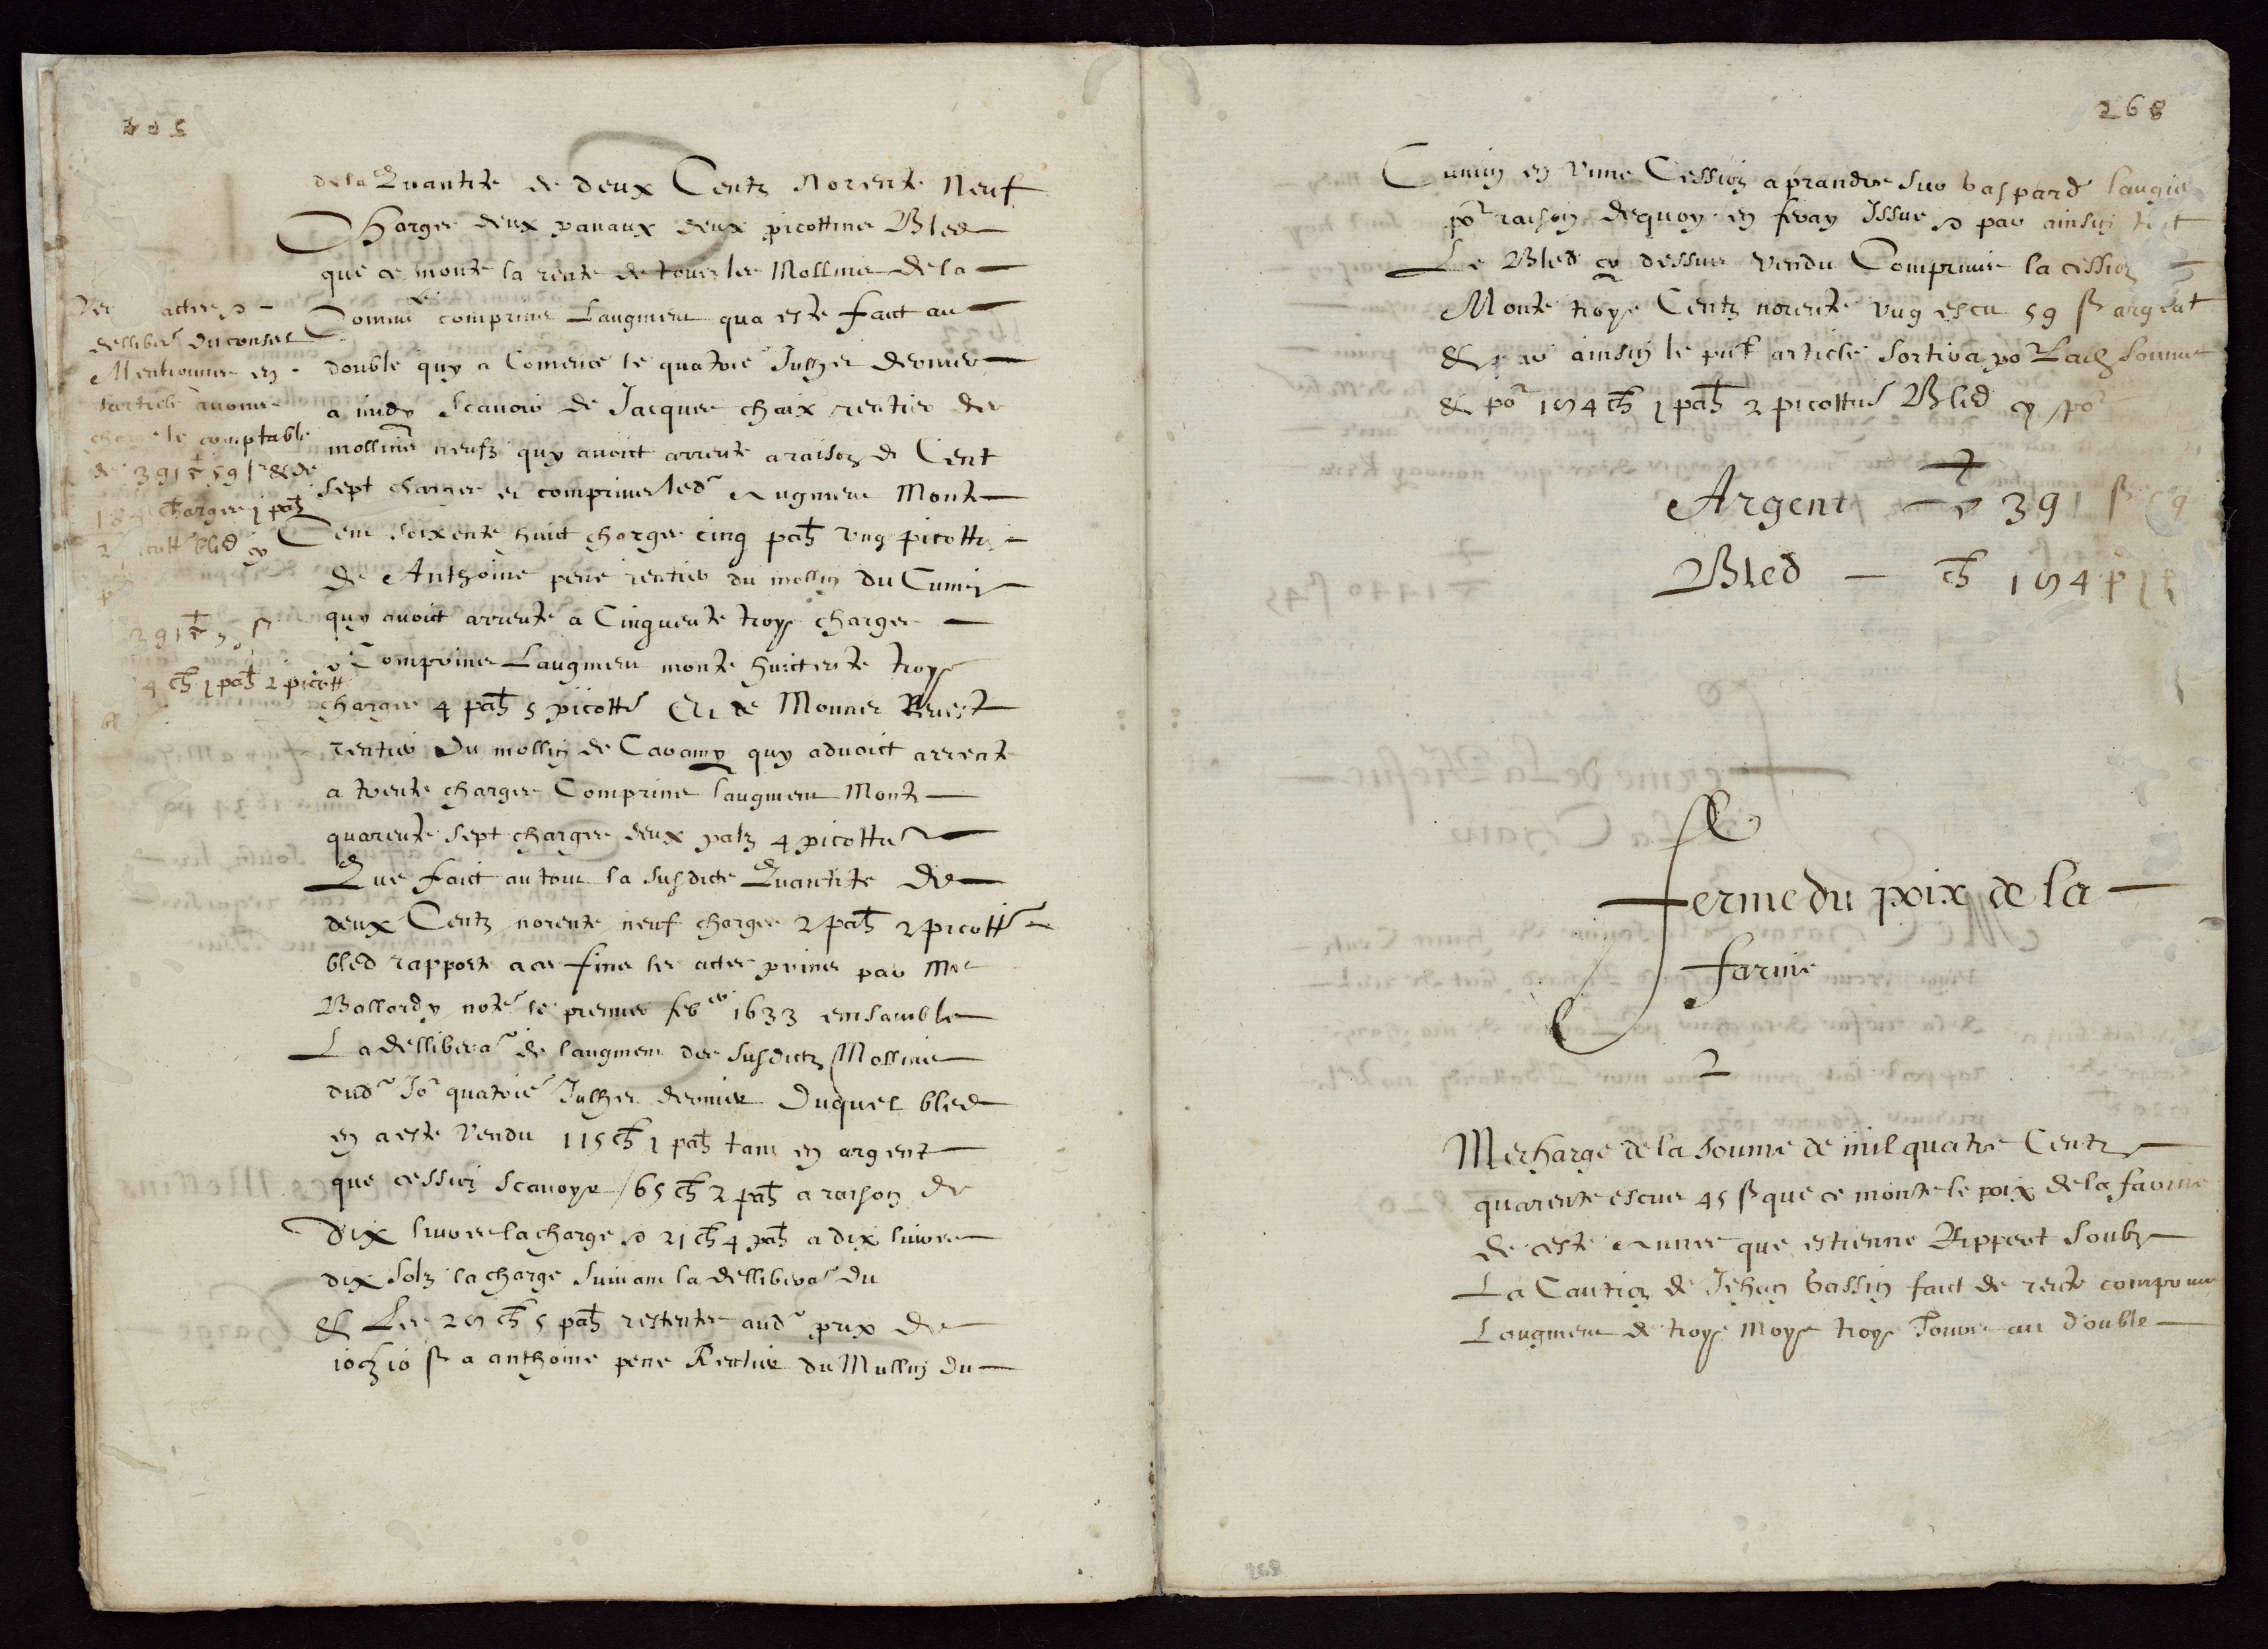 268
dela Quantite de deux Centz Norente Neuf
Charges deux panaux deux picottins Bled
que ce monte la rente de tous les Mollins dela
Commū comprins Laugment qua este faict au
double quy a Comence le quatrie Julher dernier
a midy Scavoir de Jacques chaix rentier des
mollins neufz quy avoict arrente a raison de Cent
sept charges et comprins led augment Monte
Cent soixente huict charges cinq pah ung picottin
De Anthoine pene rentier du mollin du Cumin
quy avoict arrente a Cinquente troys charges
Comprins Laugment monte huictente troys
charges 4 pah 5 picott Et de Monnet
rentier Du mollin de Cavamy quy advoict arrente
a trente charges Comprins laugment Monte
quarente sept charges deux pah 4 picottins
Que faict au tout la susdicte Quantite de
deux Centz norente neuf charges 2 pah 2 picott
bled rapporte a ces fins les actes prinses par Me
Ballardy note le premier febver 1633 ensamble
La dellibera de laugment des susdictz Mollins
dud Jo quatrie Julher dernier Duquel bled
en a este Vendu 115 ch 1 pah tant en argent
que cession scavoyr 65 ch 2 pah a raison de
Dix livres la charge 21 ch 4 pah a dix livres
dix solz la charge suivant la dellibera du
& Les 28 ch 5 pah restentes aud prix de
10 10 ß a anthoine pene Rentier du Mullin du
actes
delliber du conseil
Mentionnes en
larticle
charge le comptable
de 391 59 ß & de
184 charges 1 pah
2 picott bled cy
391
4 ch 1 pah 2 picott
Cumin en Une Cession a prandre sur Gaspard laugier
po raison dequoy en feray Issue par ainsin tout
Le Bled cy dessus Vendu Comprins la cession
Monte troys Centz norente ung escu 59 ß argent
& par ainsin le pnt article sortira po Lad somme
& po 184 ch 1 pah 2 picottins Bled cy po
Argent 391 ß 59
Bled — ch 184 p 1
ferme du poix de la
farine
2
Me charge de la somme de mil quatre Centz
quarente escus 45 ß que ce monte le poix de la farine
de ceste Annee que estienne Rippert soubz
La Caution de Jehan Gassin faict de rente comprins
Laugment de troys moys troys Jours au double
268